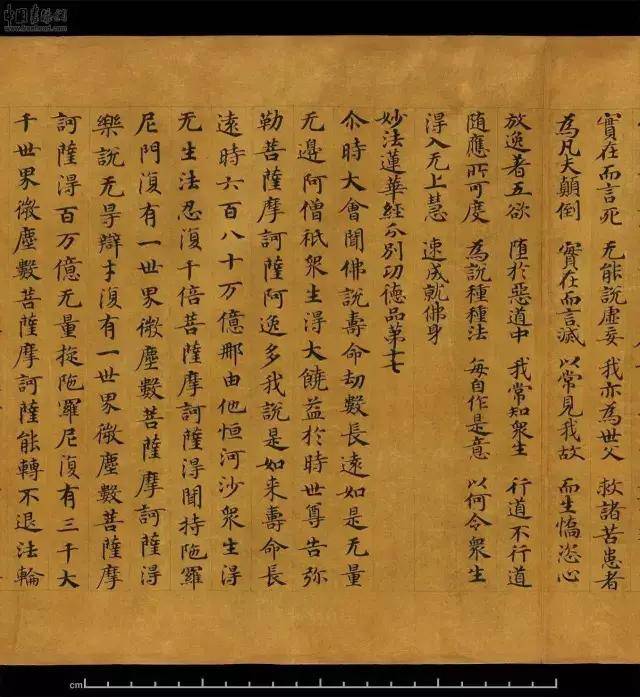 實在而言死 无能說虛妄 我亦為世父 救諸苦患者
為凡夫顛倒 實在而言滅 以常見我故 而生憍恣心
放逸著五欲 墮於惡道中 我常知衆生 行道不行道
随應所可度 為說種種法 每自作是意 以何令衆生
得入无上慧 速成就佛身
妙法蓮華經分別功德品第十七
尒時大會聞佛說壽命劫數長遠如是无量
无邊阿僧祇衆生得大饒益於時世尊告弥
勒菩薩摩訶薩阿逸多我說是如来壽命長
遠時六百八十万億那由他恒河沙衆生得
无生法忍復千倍菩薩摩訶薩得聞持陁羅
尼門復有一世界微塵數菩薩摩訶薩得
樂說无㝵辯才復有一世界微塵數菩薩摩
訶薩得百万億无量旋陁羅尼復有三千大
千世界微塵數菩薩摩訶薩能轉不退法輪
cm